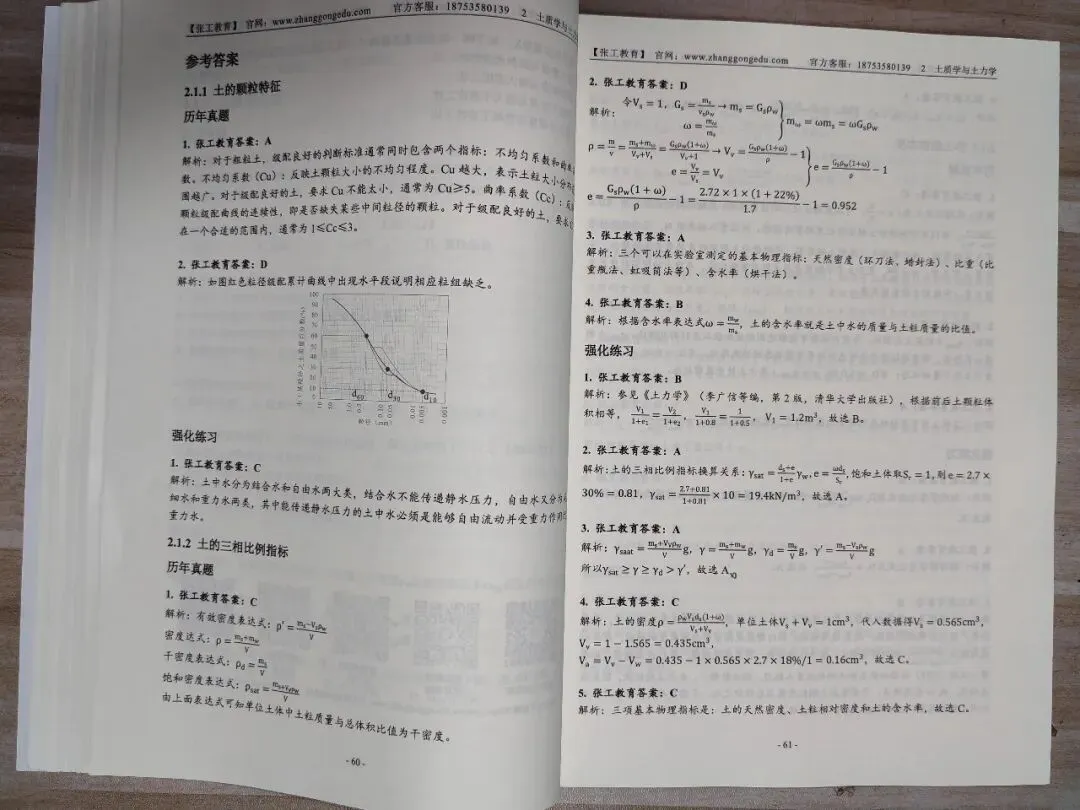 【张工教育】 官网：www.zhanggongedu.com 官方客服：18753580139 2 土质学与
参考答案
2.1.1 土的颗粒特征
历年真题
1. 张工教育答案：A
解析：对于粗粒土，级配良好的判断标准通常同时包含两个指标：不均匀系数和曲
数。不均匀系数（Cu）：反映土颗粒大小的不均匀程度。Cu 越大，表示土粒大小分布
围越广。对于级配良好的土，要求 Cu 不能太小，通常为 Cu≥5。曲率系数（Cc）：反
颗粒级配曲线的连续性，即是否缺失某些中间粒径的颗粒。对于级配良好的土，要求
在一个合适的范围内，通常为 1≤Cc≤3。
2. 张工教育答案：D
解析：如图红色粒径级配累计曲线中出现水平段说明相应粒组缺乏。
100
90
80
70
60
50
40
30
20
10
0
d60 d30 d10
粒径（mm）
强化练习
1. 张工教育答案：C
解析：土中水分为结合水和自由水两大类，结合水不能传递静水压力，自由水又分为
细水和重力水两类，其中能传递静水压力的土中水必须是能够自由流动并受重力作用
重力水。
2.1.2 土的三相比例指标
历年真题
1. 张工教育答案：C
解析：有效密度表达式：ρ′ = (ms−Vsρw)/V
密度达式：ρ = (ms+mw)/V
干密度表达式：ρd = ms/V
饱和密度表达式：ρsat = (ms+Vvρw)/V
由上面表达式可知单位土体中土粒质量与总体积比值为干密度。
- 60 -
【张工教育】 官网：www.zhanggongedu.com 官方客服：18753580139 2 土质学与土力学
2. 张工教育答案：D
解析：令Vs = 1，Gs = ms/(Vsρw) → ms = Gsρw
ω = mw/ms
mw = ωms = ωGsρw
ρ = m/V = (ms+mw)/(Vv+Vs) = Gsρw(1+ω)/(Vv+1) → Vv = Gsρw(1+ω)/ρ − 1
e = Vv/Vs = Vv
e = Gsρw(1+ω)/ρ − 1
e = Gsρw(1 + ω)/ρ − 1 = 2.72 × 1 × (1 + 22%)/1.7 − 1 = 0.952
3. 张工教育答案：A
解析：三个可以在实验室测定的基本物理指标：天然密度（环刀法、蜡封法）、比重（比
重瓶法、虹吸筒法等）、含水率（烘干法）。
4. 张工教育答案：B
解析：根据含水率表达式ω = mw/ms，土的含水率就是土中水的质量与土粒质量的比值。
强化练习
1. 张工教育答案：B
解析：参见《土力学》（李广信等编，第 2 版，清华大学出版社），根据前后土颗粒体
积相等，V1/(1+e1) = V2/(1+e2)，V1/(1+0.8) = 1/(1+0.5)，V1 = 1.2m³，故选 B。
2. 张工教育答案：A
解析：土的三相比例指标换算关系：γsat = (ds+e)/(1+e) γw，e = ωds/Sr，饱和土体取Sr = 1，则 e = 2.7 ×
30% = 0.81，γsat = (2.7+0.81)/(1+0.81) × 10 = 19.4kN/m³，故选 A。
3. 张工教育答案：A
解析：γsaat = (ms+Vvρw)/V g，γ = (ms+mw)/V g，γd = ms/V g，γ′ = (ms−Vsρw)/V g
所以γsat ≥ γ ≥ γd > γ′，故选 A。
4. 张工教育答案：C
解析：土的密度ρ = ρwVsds(1+ω)/(Vs+Vv) 单位土体Vs + Vv = 1cm³，代人数据得Vs = 0.565cm³，
Vv = 1 − 1.565 = 0.435cm³，
Va = Vv − Vw = 0.435 − 1 × 0.565 × 2.7 × 18%/1 = 0.16cm³，故选 C。
5. 张工教育答案：C
解析：三项基本物理指标是：土的天然密度、土粒相对密度和土的含水率，故选 C。
- 61 -